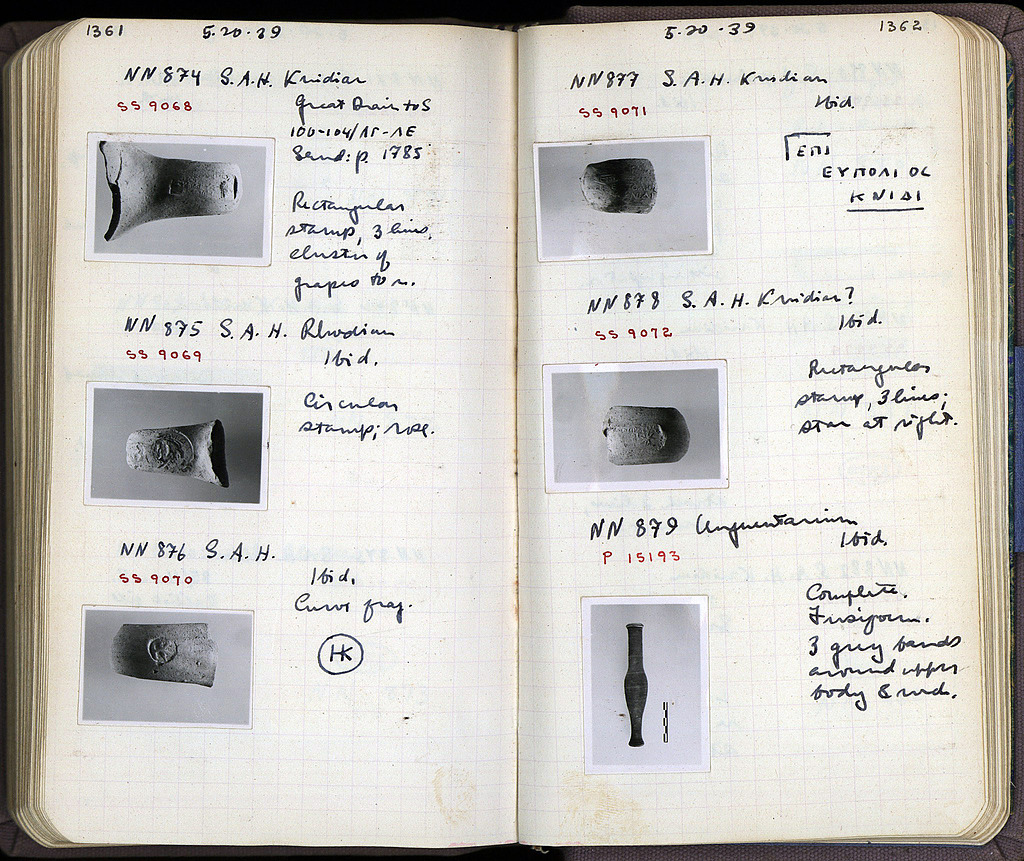 1361 5.20.39
NN 874 S.A.H. Knidian
SS 9068
Great Drain to S
100-104/ΛΓ-ΛΕ
p. 1785
Rectangular
stamp, 3 lines,
cluster of
grapes to r.
NN 875 S.A.H. Rhodian
SS 9069
Ibid.
Circular
stamp; rose.
NN 876 S.A.H.
SS 9070
Ibid.
Curve frag.
HK
5.20.39 1362
NN 877 S.A.H. Knidian
SS 9071
Ibid.
ΕΠΙ
ΕΥΠΟΛΙ ΟC
ΚΝΙΔΙ
NN 878 S.A.H. Knidian?
SS 9072
Ibid.
Rectangular
stamp, 3 lines;
star at right.
NN 879 Unguentarium
P 15193
Ibid.
Complete.
Fusiform.
3 grey bands
around upper
body &